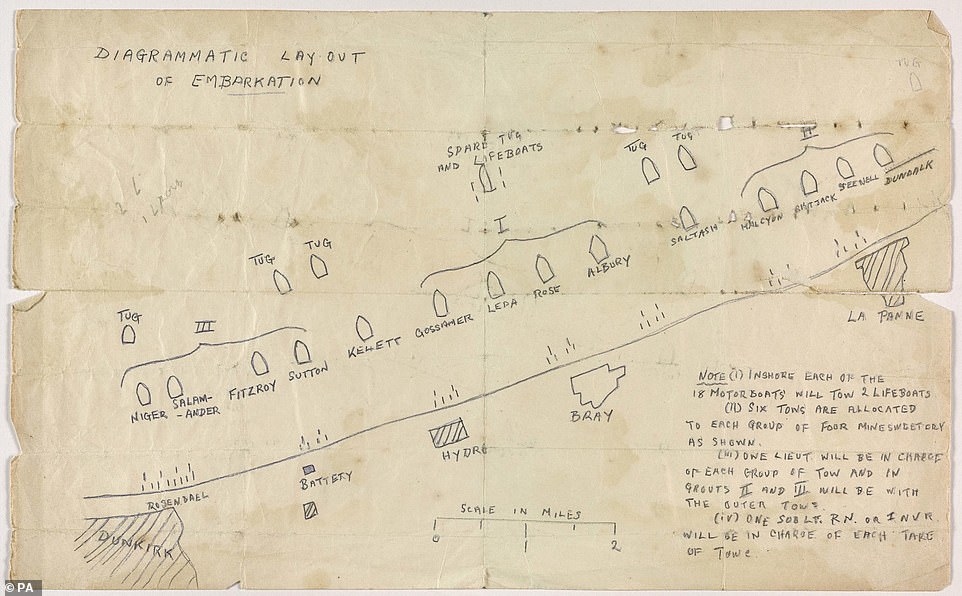 DIAGRAMMATIC LAY OUT
OF EMBARKATION
TUG
SPARE TUG
AND LIFEBOATS
TUG
TUG
II
HALCYON
SKIPJACK
SPEEDWELL
DUNDALK
SALTASH
I
GOSSAMER
LEDA
ROSE
ALBURY
TUG
TUG
KELLETT
TUG
III
NIGER
SALAM-
-ANDER
FITZROY
SUTTON
LA PANNE
BRAY
HYDRO
BATTERY
ROSENDAEL
DUNKIRK
SCALE IN MILES
0 1 2
NOTE (I) INSHORE EACH OF THE
18 MOTORBOATS WILL TOW 2 LIFEBOATS
(II) SIX TOWS ARE ALLOCATED
TO EACH GROUP OF FOUR MINESWEEPERS
AS SHOWN.
(III) ONE LIEUT WILL BE IN CHARGE
OF EACH GROUP OF TOW AND IN
GROUPS II AND III WILL BE WITH
THE OUTER TOWS.
(IV) ONE SUB LT. R.N. OR
WILL BE IN CHARGE OF EACH
OF TOWS.
©PA